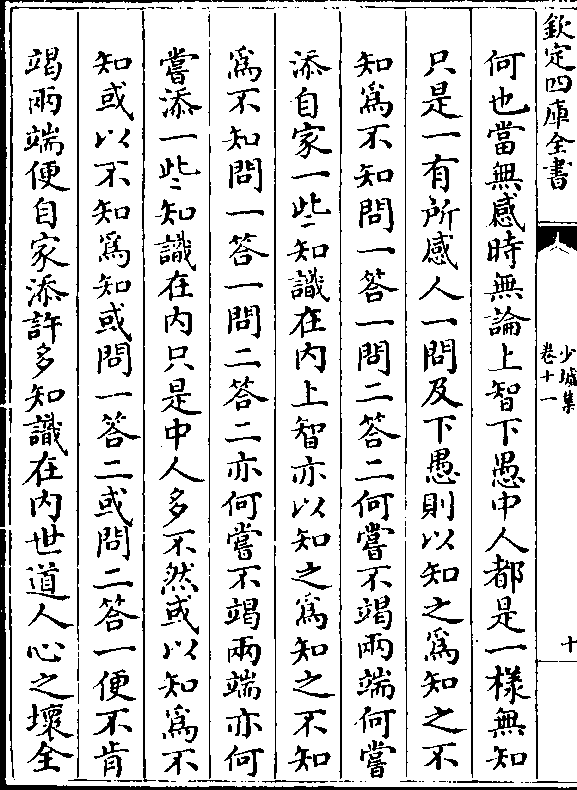 欽定四庫全書
少墟集
卷十一
十
何也當無感時無論上智下愚中人都是一樣無知
只是一有所感人一問及下愚則以知之為知之不
知為不知問一答一問二答二何嘗不竭兩端何嘗
添自家一些知識在内上智亦以知之為知之不知
為不知問一答一問二答二亦何嘗不竭兩端亦何
嘗添一些知識在内只是中人多不然或以知為不
知或以不知為知或問一答二或問二答一便不肯
竭兩端便自家添許多知識在内世道人心之壞全